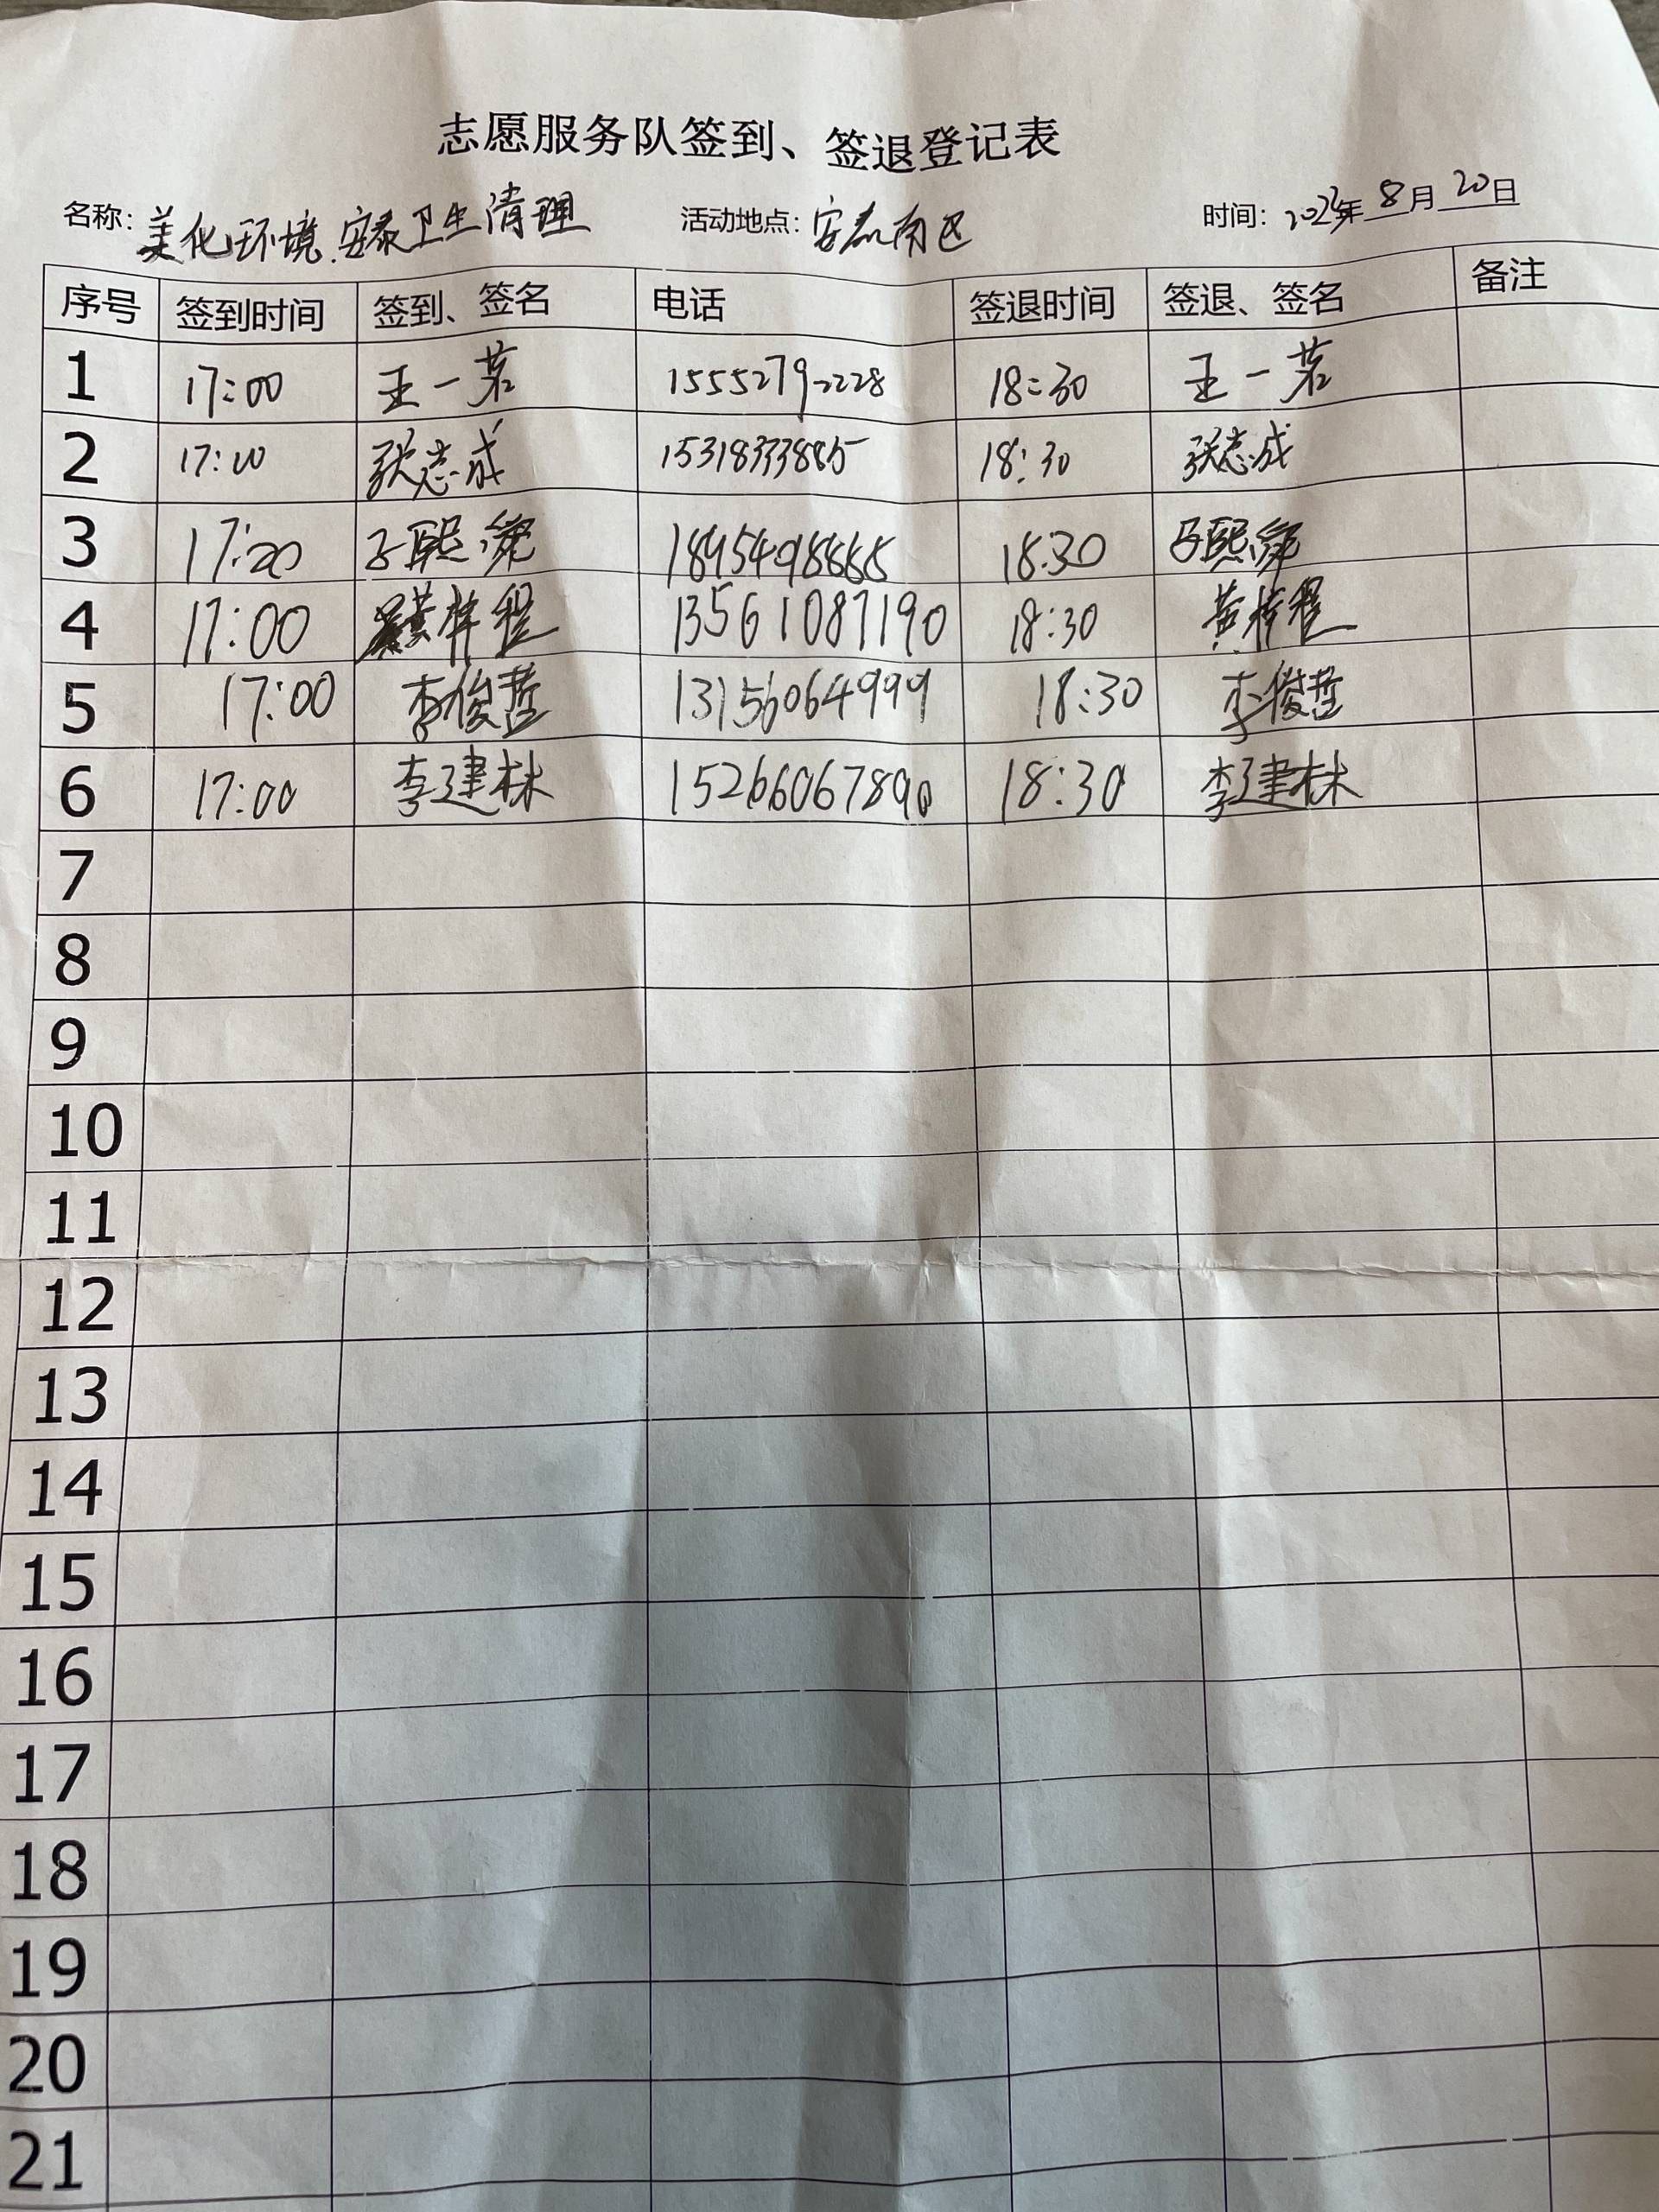 志愿服务队签到、签退登记表
名称：美化环境.安泰卫生清理 活动地点：安泰南区 时间：2024年8月20日
序号 签到时间 签到、签名 电话 签退时间 签退、签名 备注
1 17:00 王一茗 15552792228 18:30 王一茗
2 17:00 张志成 15318333885 18:30 张志成
3 17:20 18:30
4 17:00 黄梓程 13561087190 18:30 黄梓程
5 17:00 李俊哲 13156064999 18:30 李俊哲
6 17:00 李建林 15266067890 18:30 李建林
7
8
9
10
11
12
13
14
15
16
17
18
19
20
21